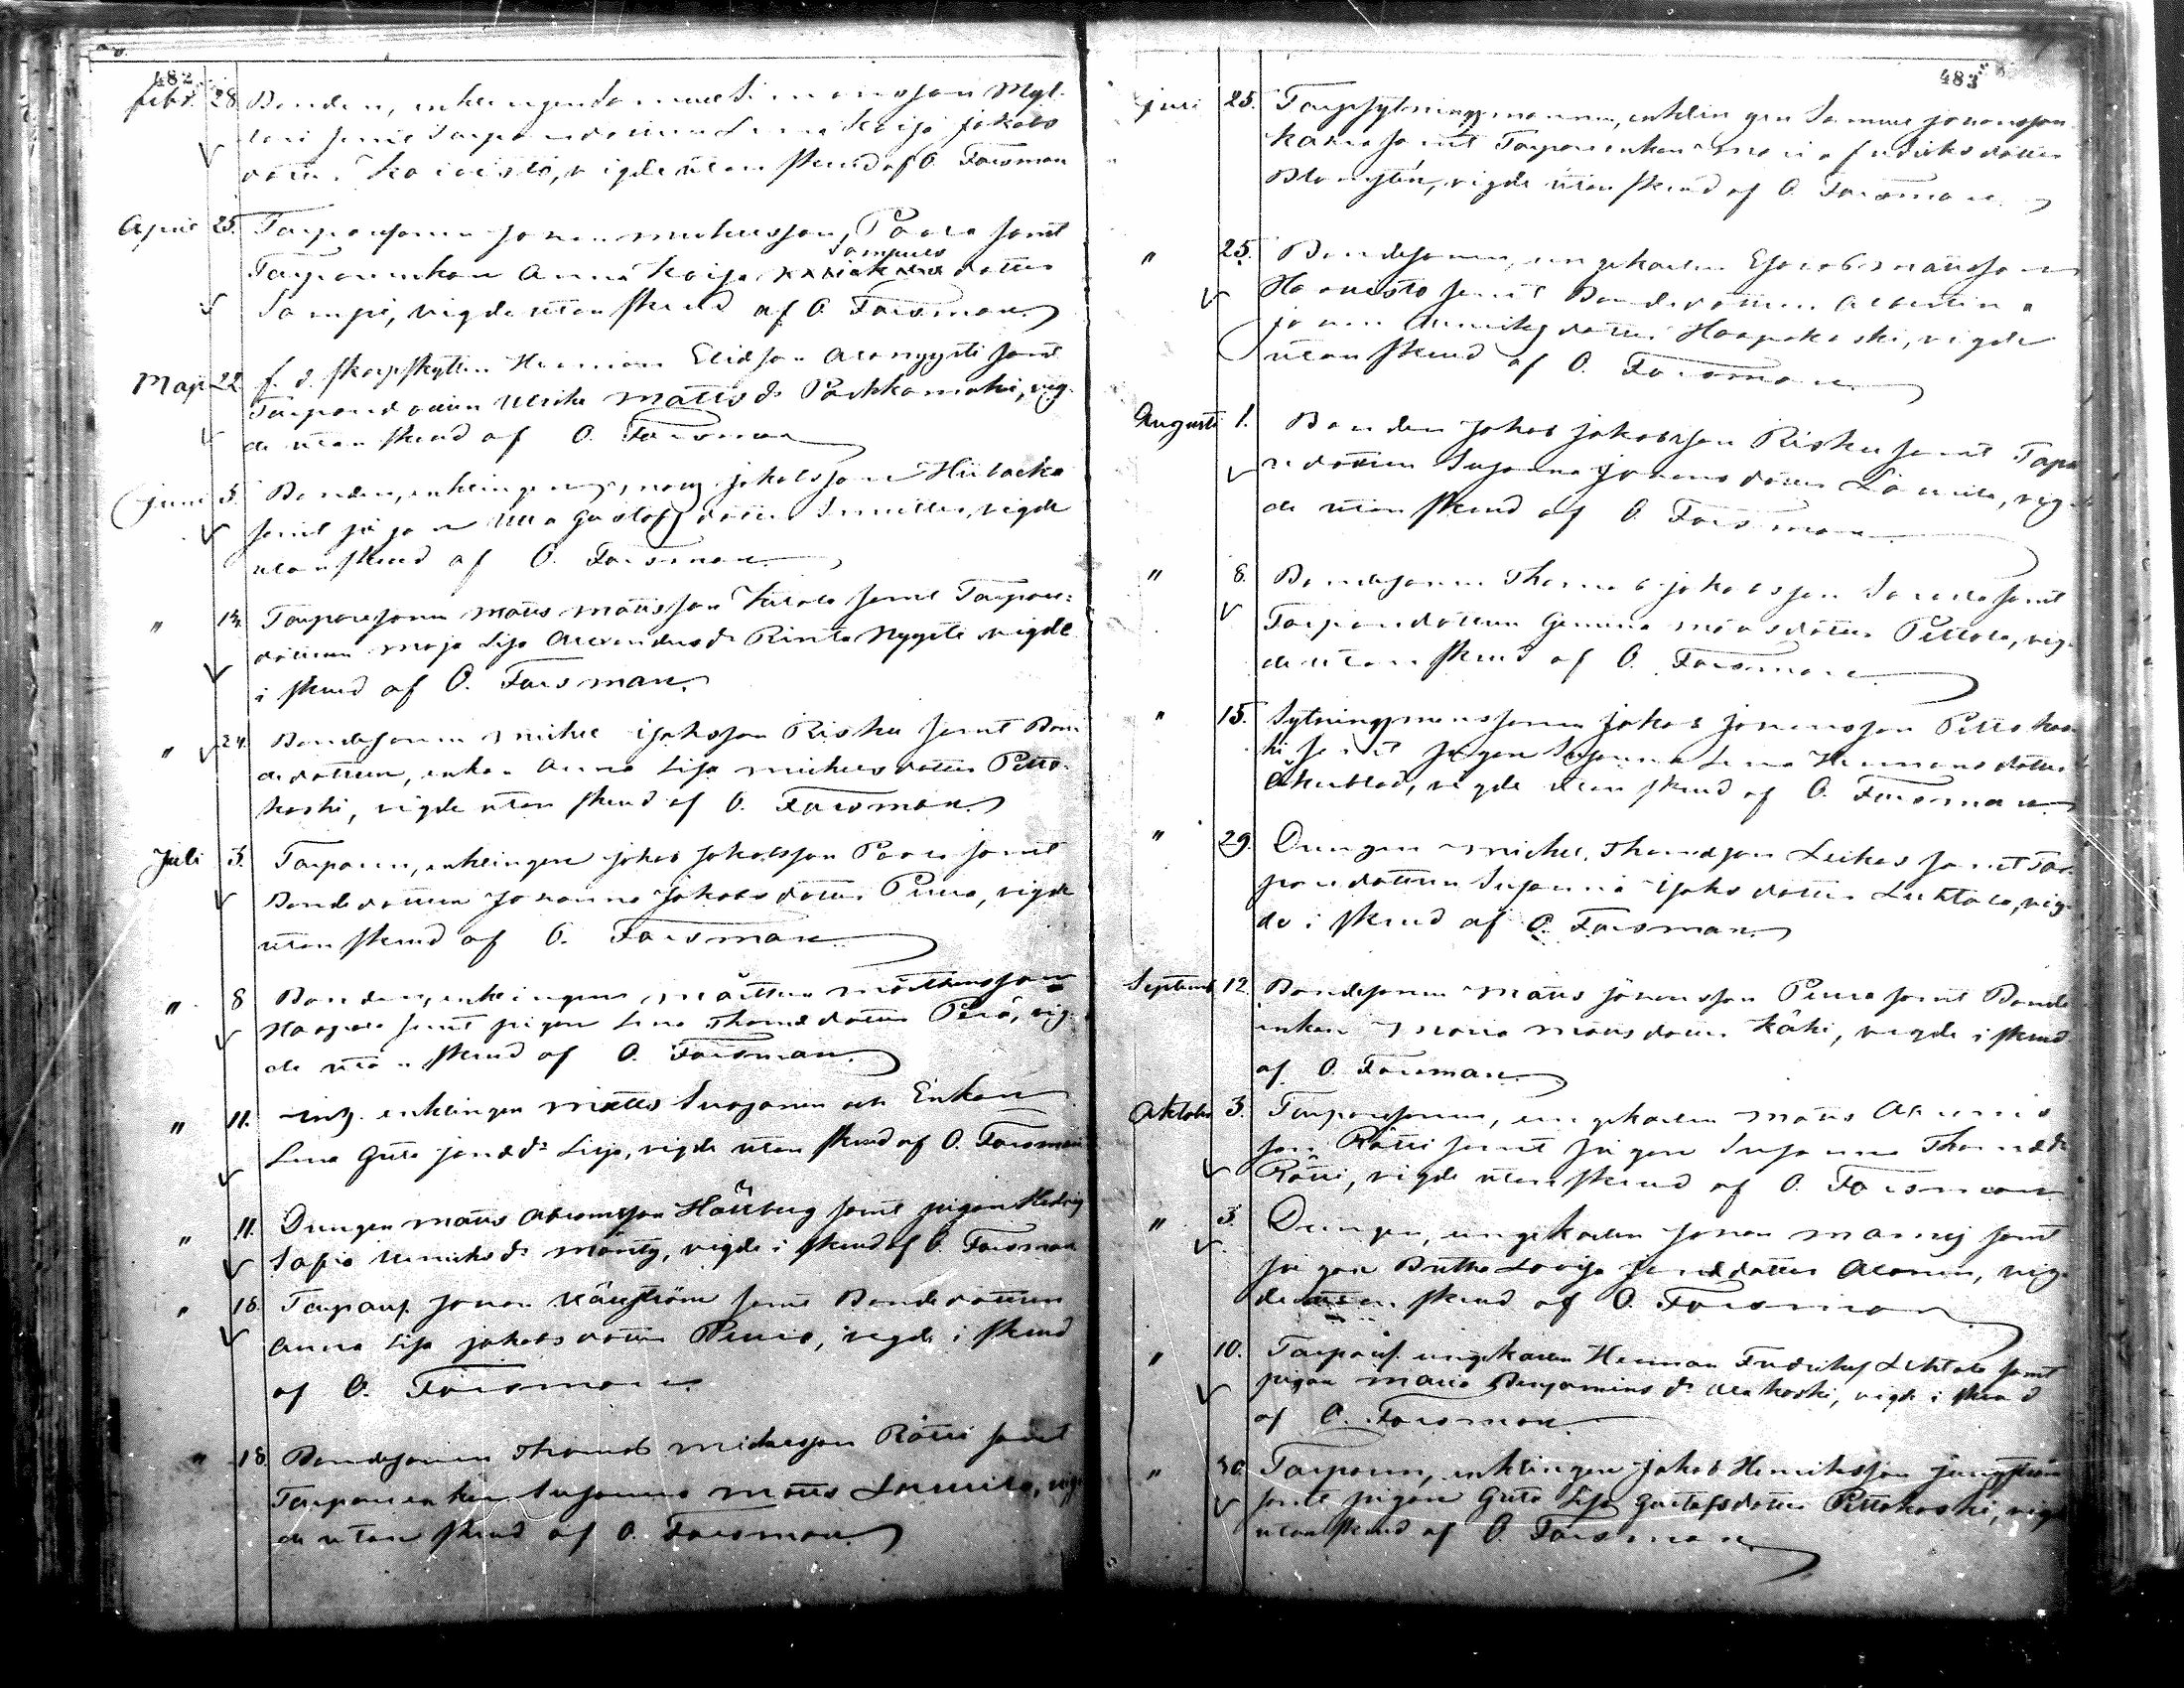 482
febr. 28 Bonden, enklingen Samuel Simonsson Myl-
samt Torparedottren Lena Kaisa Jakobs
dotter Koivisto, vigde utan skrud af O. Forsman
April 25. Torparesonen Johan Michelsson Paara samt
Samuels
Torpareenkan Anna Kaisa dotter
Sampi, vigde utan skrud af O. Forsman
Maji 22 f. d. skarpskytten Herman Eliasson Alanyysti samt
Torparedottren Ulrika Matts dr Pashkamäki, vig-
de utan skrud af O. Forsman
Juni 5. Bonden, enklingen Jakobsson Hiibacka
samt pigan Ulla Gustafsdotter vigde
utan skrud af O. Forsman
" 13. Torparesonen Matts Mattsson samt Torpare-
dottren Maja Lisa Alexanders dr Rinta Nyysti vigde
i skrud af O. Forsman.
" 24. Bondesonen Michel Isaksson Risku samt Bon-
dedottren, enkan Anna Lisa Michelsdotter Petto-
koski, vigde utan skrud af O. Forsman.
Juli 3. Torparen, enklingen Jakob Jakobsson Paara samt
Bondedottren Johanna Jakobsdotter Peura, vigde
utan skrud af O. Forsman
" 8 Bonden, enklingen Mårten Mårtensson
Haapala samt pigan Lena Thomædotter Perä, vig-
de utan skrud af O. Forsman.
" 11. Inh. enklingen Matts Suojanen och Enkan
Lena Greta Jonæ dr Lisa, vigde utan skrud af O. Forsman
" 11. Drengen Matts Abramsson Hällberg samt pigan Hedvig
Sofia Henriks dr Mänty, vigde i skrud af O. Forsman
" 18. Torparis. Johan samt Bondedottren
Anna Lisa Jakobsdotter Peura, vigde i skrud
af O. Forsman
" 18. Bondesonen Thomas Michelsson Rätti samt
Torpareenkan Susanna Matts Launila, vig-
de utan skrud af O. Forsman.
483
Juli 25. Torp.sytningsmannen, enklingen Samuel Johansson
samt Torpareenkan Maria Fredriksdotter
Blomsten, vigde utan skrud af O. Forsman
" 25. Bondesonen, ungekarlen Esaias Mattsson
Haavisto samt Bondedottren Albertina
Johanna Henriksdotter Haapakoski, vigde
utan skrud af O. Forsman
Augusti 1. Bonden Jakob Jakobsson Risku samt Torpa-
redottren Susanna Johansdotter Launila, vig-
de utan skrud af O. Forsman
" 8. Bondesonen Thomas Jakobsson samt
Torparedottren Gemina Mattsdotter Pettola, vig-
de utan skrud af O. Forsman
" 15. Sytningsmanssonen Jakob Johansson Pettokos-
ki samt pigan Susanna Lena Hermansdotter
Åkerblad, vigde utan skrud af O. Forsman
" 29. Drengen Michel Thomæsson Leikas samt Tor-
paredottren Susanna Isaksdotter Luhtala, vig-
de i skrud af O. Forsman
Septemb. 12. Bondesonen Matts Johansson Peura samt Bonde
enkan Maria Mattsdotter Käki, vigde i skrud
af O. Forsman
Oktober 3. Torparesonen, ungekarlen Matts
son Rätti samt pigan Susanna Thomæ dr
Rätti, vigde utan skrud af O. Forsman
" 3. Drengen, ungekarlen Johan samt
pigan Britha Lovisa Jonædotter Alanen, vig-
de utan skrud af O. Forsman
" 10. Torparis. ungekarlen Herman Fredriks Lehtola samt
pigan Maria Benjamins dr Alakoski, vigde i skrud
af O. Forsman
" 30. Torparen, enklingen Jakob Henriksson
samt pigan Greta Lisa Gustafsdotter Pettokoski, vigde
utan skrud af O. Forsman